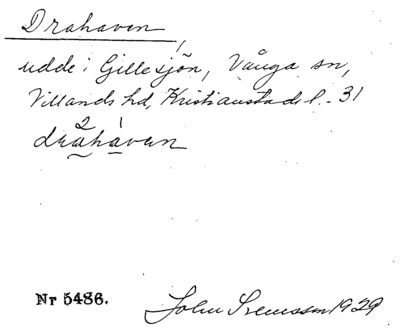 Drahaven,
udde i Gillesjön, Vånga sn,
Villands hd, Kristianstads l. - 31
2 1
drahaven
Nr 5486. John Svensson 1929